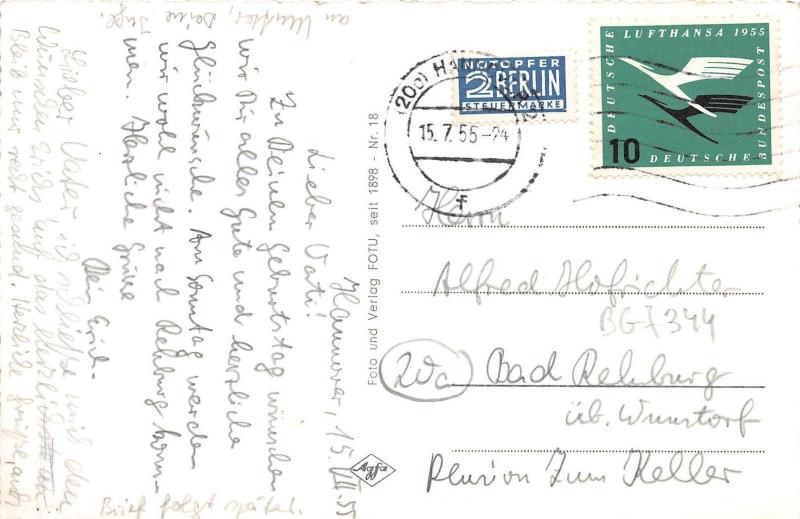 Hannover, 15. VII. 55
Lieber Vati!
Zu Deinem Geburtstag wünschen
wir Dir alles Gute und herzliche
Glückwünsche. Am Sonntag werden
wir wohl nicht nach Rehburg kom-
men. Herzliche Grüsse
Dein Erich.
Lieber Vater ich schließe mich den
Wünschen Erichs auf das herzlichste an
Bleib nur recht gesund. Herzliche Grüße, auch
an Mutter, Deine
Inge.
Brief folgt später.
Foto und Verlag FOTU, seit 1898 - Nr. 18
Agfa
(20a) HANNOVER
15.7.55-24
f
NOTOPFER
2 BERLIN
STEUERMARKE
DEUTSCHE LUFTHANSA 1955
10
DEUTSCHE BUNDESPOST
Herrn
Alfred Hofrichter
BG7344
(20a) Bad Rehburg
üb. Wunstorf
Pension Zum Keller